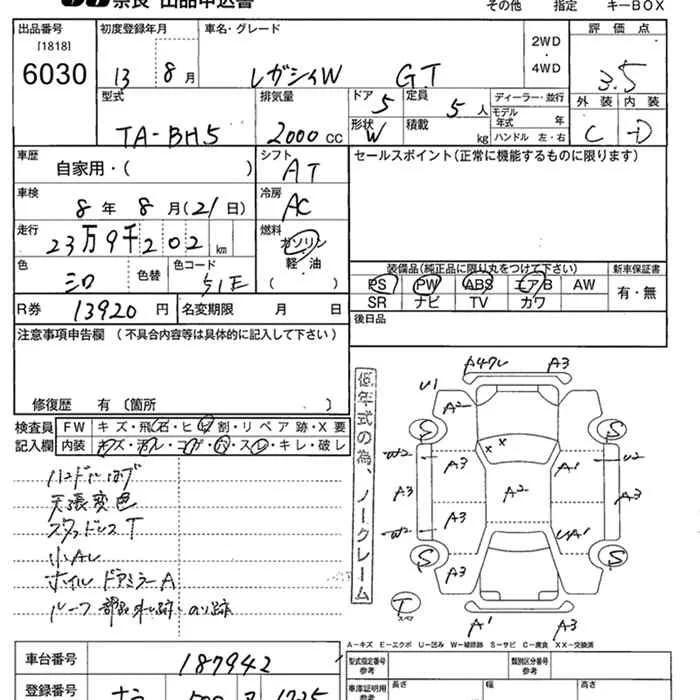 奈良 出品申込書 その他 指定 キーBOX
出品番号 初度登録年月 車名・グレード 評価点
[1818]
6030 13 8月 レガシィW GT 2WD・4WD 3.5
外装 内装
C D
型式 排気量 ドア 5 定員 5人 ディーラー・並行
モデル年式 年
TA-BH5 2000cc 形状 W 積載 kg ハンドル 左・右
車歴 自家用・( ) シフト AT セールスポイント(正常に機能するものに限ります)
車検 8年8月(21日) 冷房 AC
走行 23万9千202km 燃料 ガソリン
軽・油
( )
色 シロ 色替 色コード 51E
装備品(純正品に限り丸をつけて下さい) 新車保証書
PS PW ABS エアB AW 有・無
SR ナビ TV カワ
R券 13920円 名変期限 月 日 後日品
注意事項申告欄 (不具合内容等は具体的に記入して下さい)
修復歴 有〔箇所 〕
検査員 FW キズ・飛石・ヒビ割・リペア跡・X要
記入欄 内装 キズ・汚レ・コゲ・穴・スレ・キレ・破レ
天張変色
スタッドレスT
小Aレ
ホイル ドアミラーA
低年式の為、ノークレーム
A3
U1
A2
S S
W2 A3 A1 U2
A3 A2 A3
W2 A3 UA1
S S
A3
T スペア
A1 A3
A-キズ E-エクボ U-凹み W-補修跡 S-サビ C-腐食 XX-交換済
車台番号 187942 型式指定番号 参考 類別区分番号 参考
登録番号 車庫証明用 参考 長さ 幅 高さ